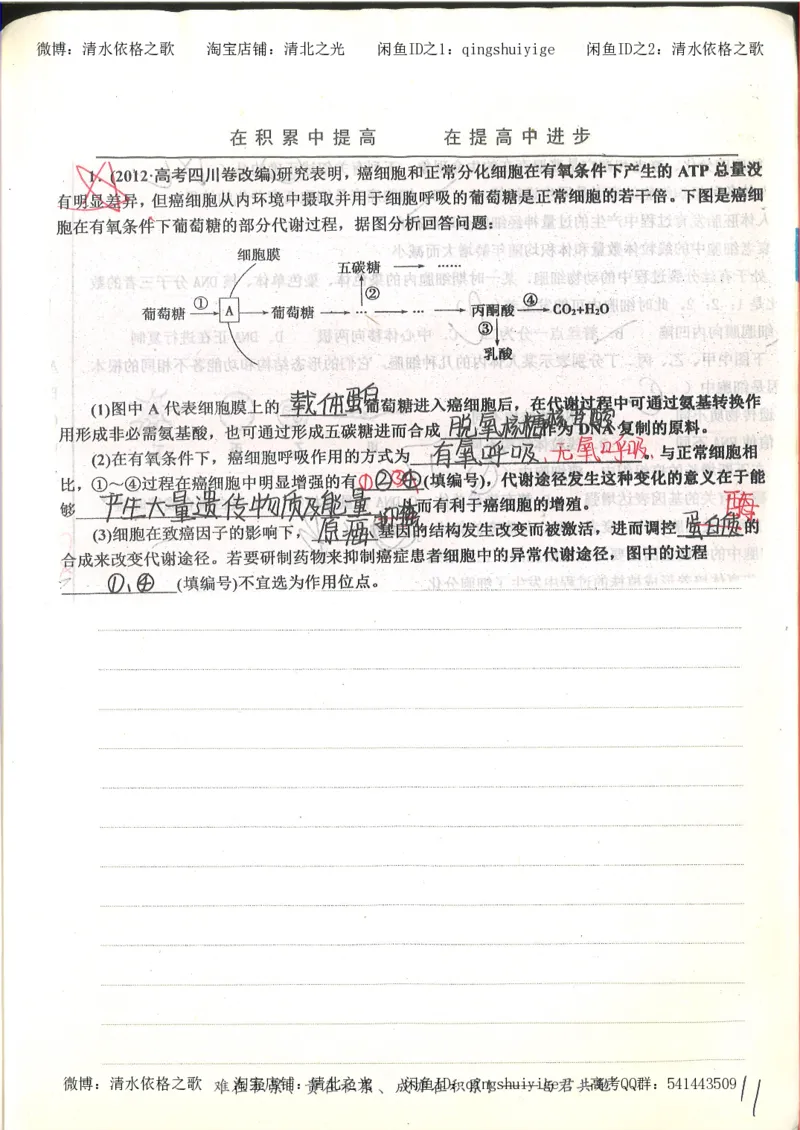 微博：清水依格之歌 淘宝店铺：清北之光 闲鱼ID之1：qingshuiyige 闲鱼ID之2：清水依格之歌
在积累中提高 在提高中进步
1．(2012·高考四川卷改编)研究表明，癌细胞和正常分化细胞在有氧条件下产生的 ATP 总量没
有明显差异，但癌细胞从内环境中摄取并用于细胞呼吸的葡萄糖是正常细胞的若干倍。下图是癌细
胞在有氧条件下葡萄糖的部分代谢过程，据图分析回答问题：
细胞膜
五碳糖 ……
②
葡萄糖 ① A 葡萄糖 … … 丙酮酸 ④ CO₂+H₂O
③
乳酸
(1)图中 A 代表细胞膜上的 载体蛋白 葡萄糖进入癌细胞后，在代谢过程中可通过氨基转换作
用形成非必需氨基酸，也可通过形成五碳糖进而合成 脱氧核糖核苷酸 作为 DNA 复制的原料。
(2)在有氧条件下，癌细胞呼吸作用的方式为 有氧呼吸、无氧呼吸。与正常细胞相
比，①～④过程在癌细胞中明显增强的有 ①②③④ (填编号)，代谢途径发生这种变化的意义在于能
够 产生大量遗传物质及能量 ，从而有利于癌细胞的增殖。
酶
(3)细胞在致癌因子的影响下， 原癌 抑癌 基因的结构发生改变而被激活，进而调控 蛋白质 的
合成来改变代谢途径。若要研制药物来抑制癌症患者细胞中的异常代谢途径，图中的过程
①、④ (填编号)不宜选为作用位点。
微博：清水依格之歌 淘宝店铺：清北之光 闲鱼ID：qingshuiyige 高考QQ群：541443509
11